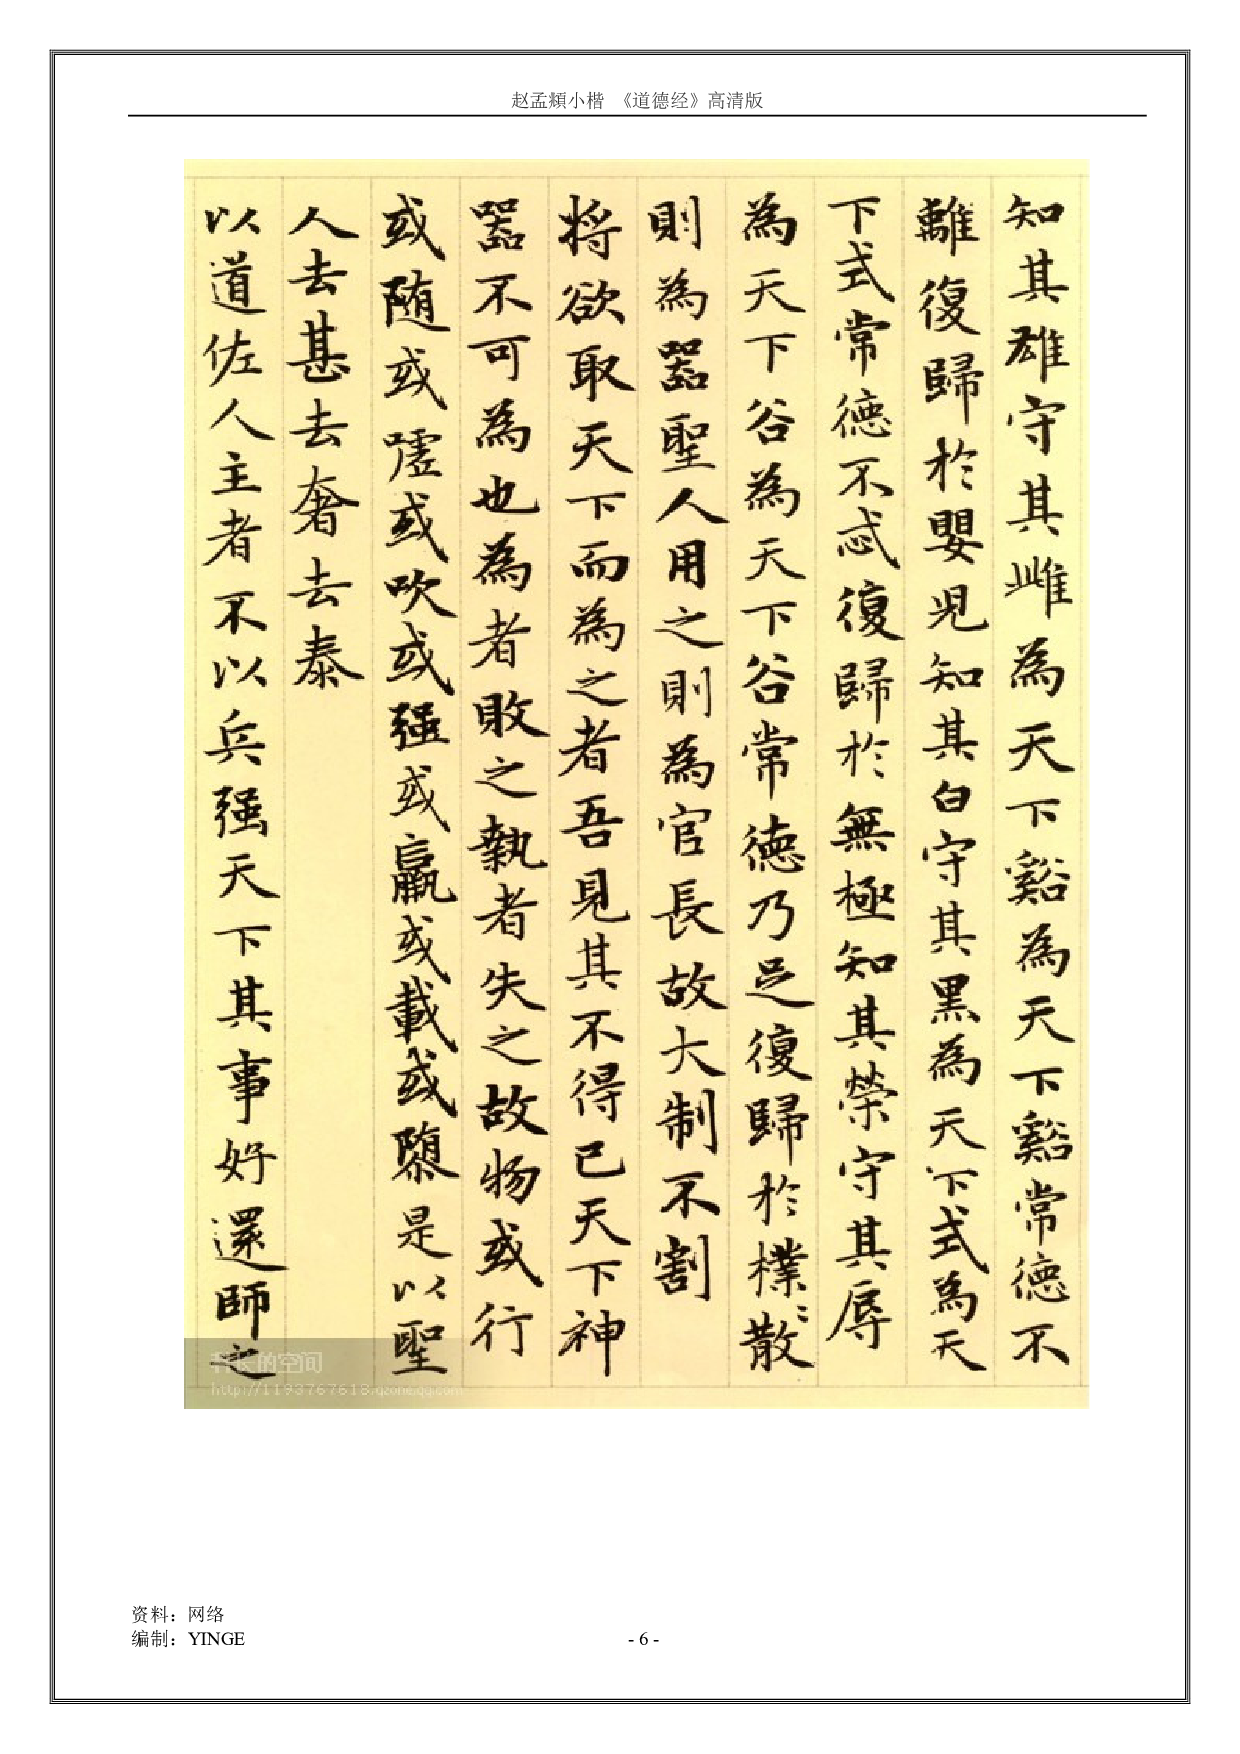 赵孟頫小楷 《道德经》高清版
知其雄守其雌為天下谿為天下谿常德不
離復歸於嬰児知其白守其黒為天下式為天
下式常德不忒復歸於無極知其榮守其辱
為天下谷為天下谷常德乃足復歸於樸〻散
則為器聖人用之則為官長故大制不割
将欲取天下而為之者吾見其不得已天下神
器不可為也為者敗之執者失之故物或行
或随或嘘或吹或强或羸或載或隳是以聖
人去甚去奢去泰
以道佐人主者不以兵强天下其事好還師之
的空间
http://1193767618.qzone.qq.com
资料：网络
编制：YINGE
- 6 -